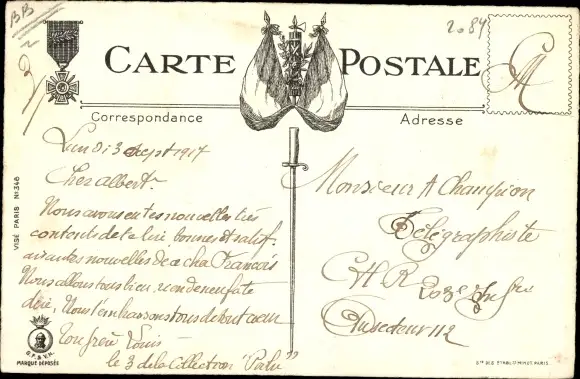 BB
2084
CARTE POSTALE
Correspondance
Adresse
Lundi 3 Sept 1917
Cher albert.
Nous avons eu tes nouvelles très
contents de te lire bonnes et satisf.
aivantes nouvelles de ce cher François
Nous allons tous bien,
Nous t'embrassons tous de tout cœur
Ton frère Louis
le 3 de la Collection "Palu"
Monsieur A Champion
Télégraphiste
C H R
Du secteur 112
VISÉ PARIS No 346
MARQUE DÉPOSÉE